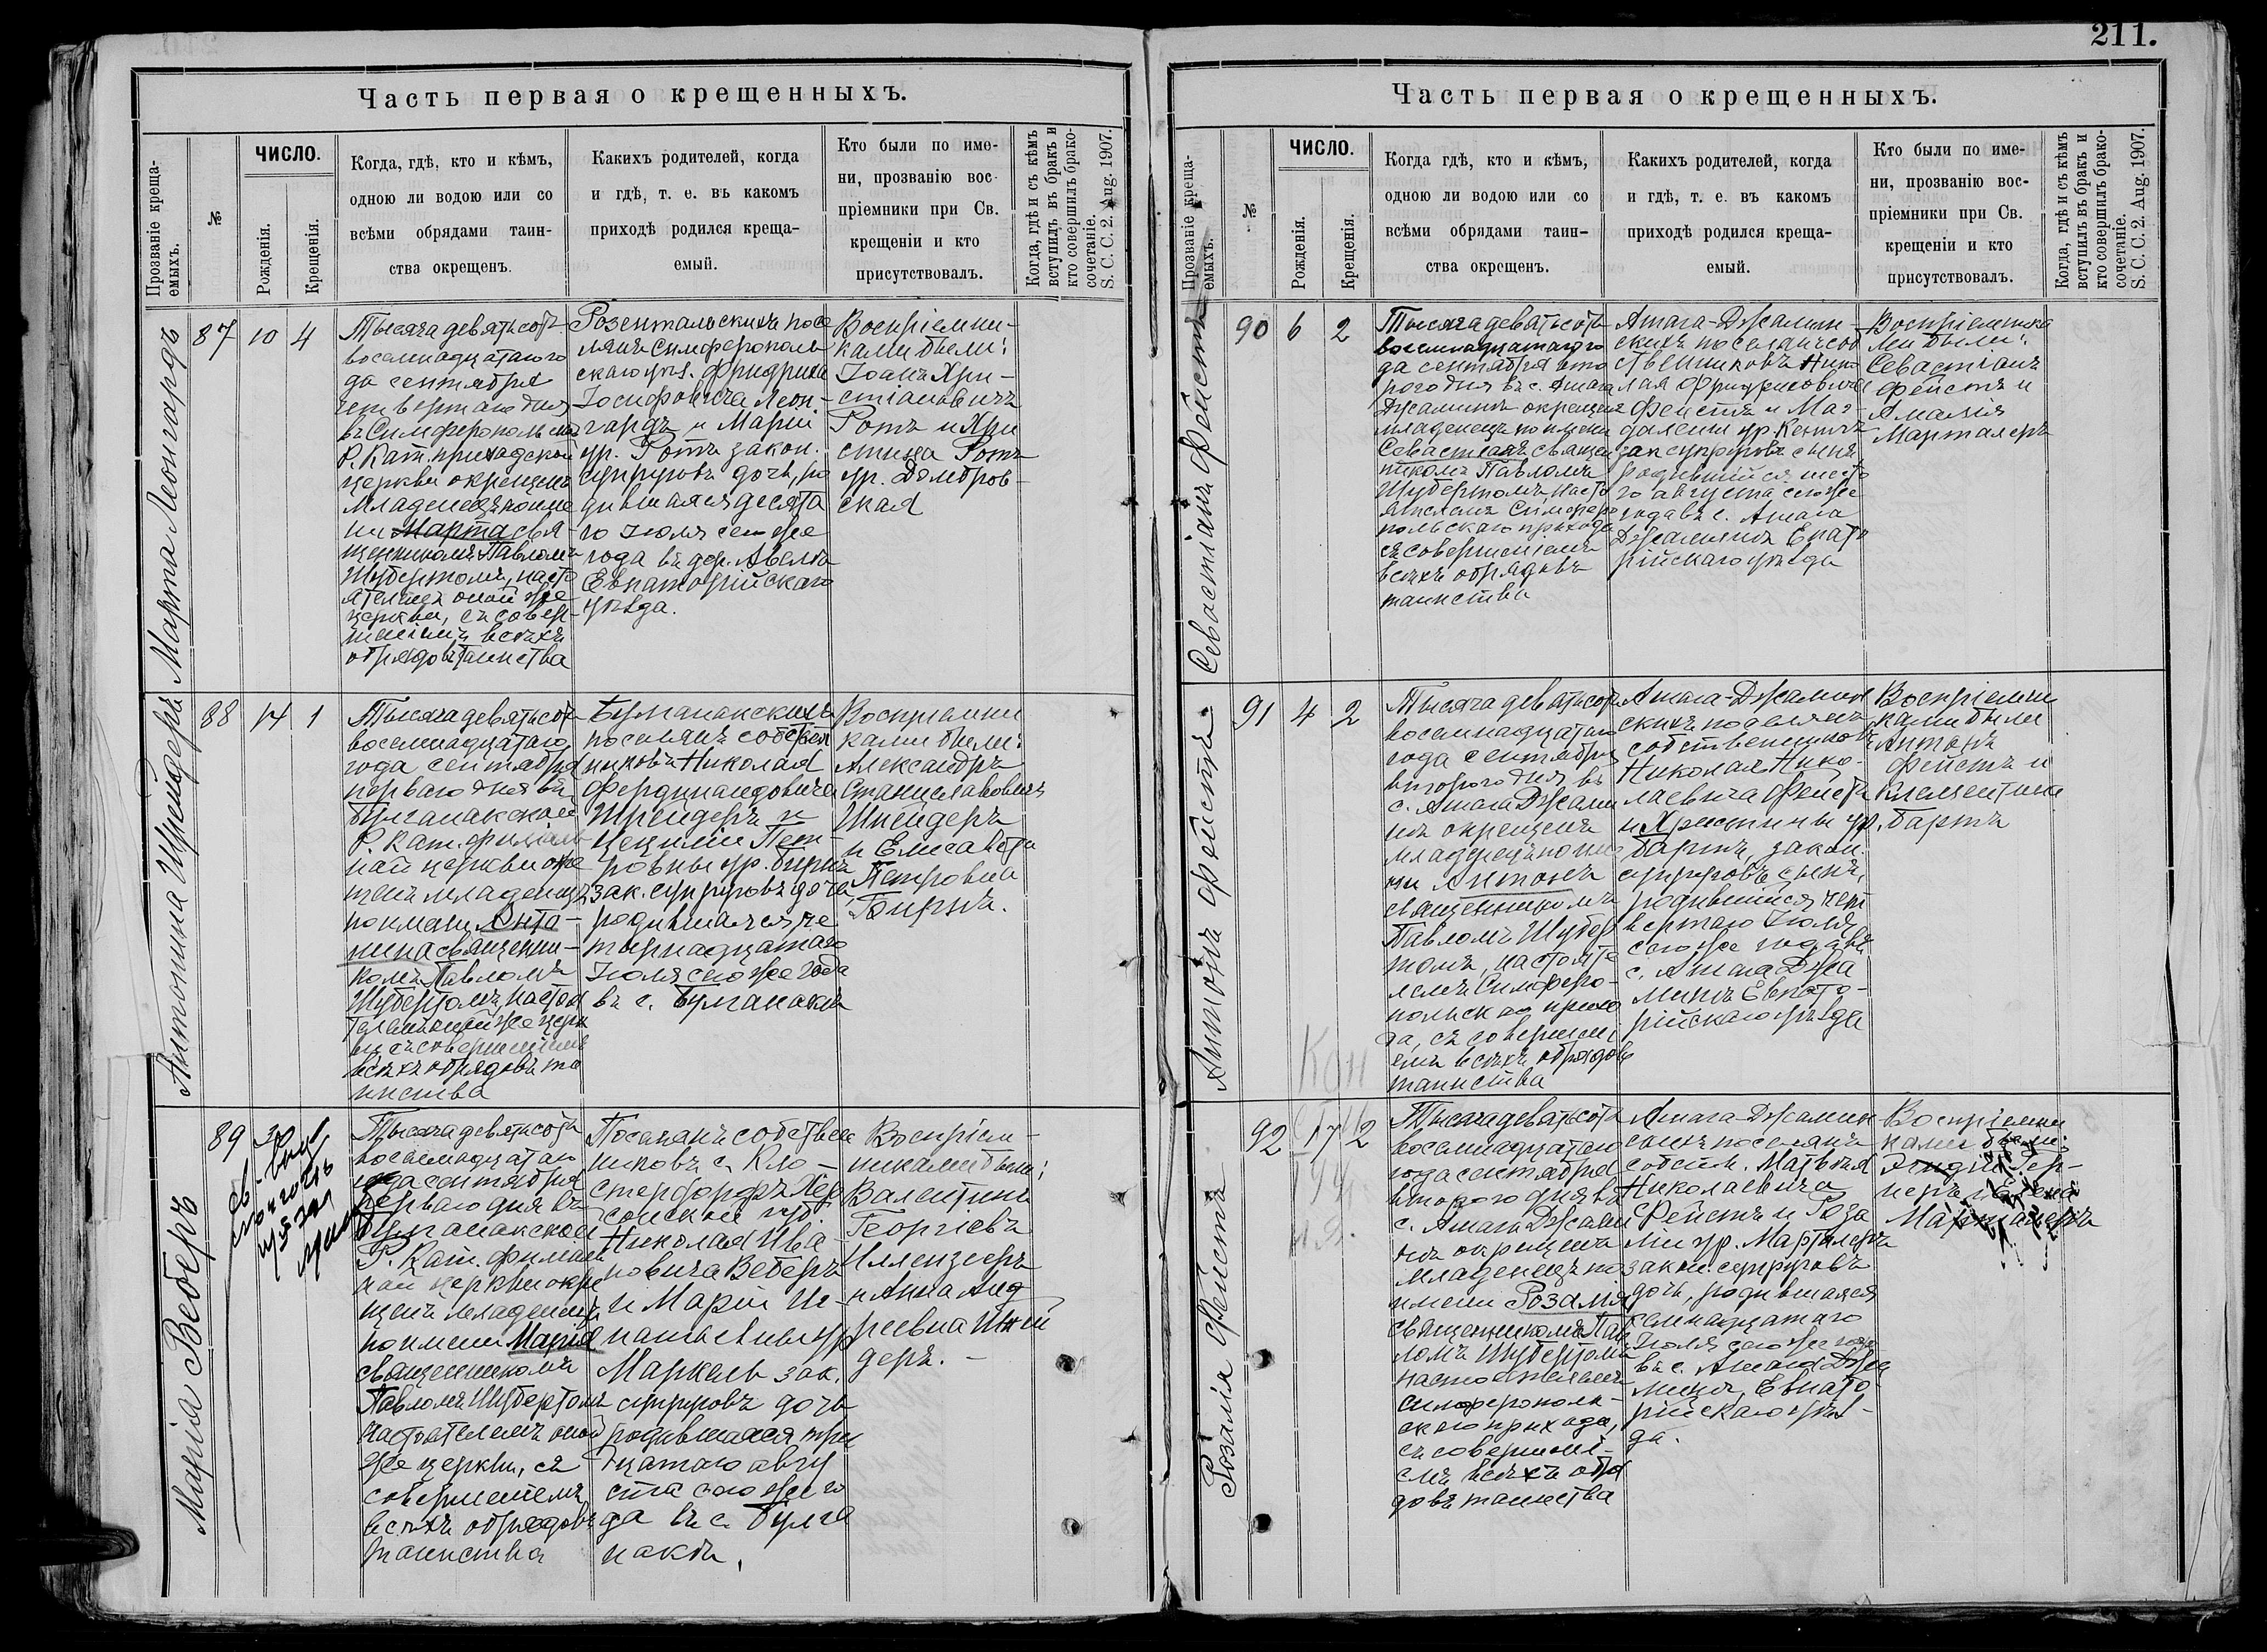 Часть первая о крещенныхъ.
Прозваніе креща-
емыхъ.
№
ЧИСЛО.
Рожденія.
Крещенія.
Когда, гдѣ, кто и кѣмъ,
одною ли водою или со
всѣми обрядами таин-
ства окрещенъ.
Какихъ родителей, когда
и гдѣ, т. е. въ какомъ
приходѣ родился креща-
емый.
Кто были по име-
ни, прозванію вос-
пріемники при Св.
крещеніи и кто
присутствовалъ.
Когда, гдѣ и съ кѣмъ
вступилъ въ бракъ и
кто совершилъ брако-
сочетаніе.
S. C. C. 2. Aug. 1907.
Марта Леонгардъ
87
10
4
Тысяча девятьсотъ
восемнадцатаго го
да сентября
четвертаго дня
въ Симферопольской
Р. Кат. приходской
церкви окрещенъ
младенецъ по име
ни Марта свя-
щенникомъ Павломъ
Шубертомъ, насто
ятелемъ оной же
церкви, съ совер-
шеніемъ всѣхъ
обрядовъ таинства
Розентальскихъ посе
лянъ Симферополь
скаго уѣз. Фридриха
Іосифовича Леон-
гардъ и Маріи
ур. Ротъ закон.
супруговъ дочь, ро
дившаяся десята
го Іюля сего же
года въ дер.
Евпаторійскаго
уѣзда.
Воспріемни-
ками были:
Іоанъ Хри-
стіановичъ
Ротъ и Хри
стина Ротъ
ур. Домбров-
ская
Антонина Шнейдеръ
88
14
1
Тысяча девятьсотъ
восемнадцатаго
года сентября
перваго дня въ
Булганакской
Р. Кат. филіаль
ной церкви окре
щенъ младенецъ
по имени Анто-
нина священни-
комъ Павломъ
Шубертомъ, настоя
телемъ оной же церк
ви съ совершеніемъ
всѣхъ обрядовъ та
инства
Булганакскихъ
поселянъ собствен
никовъ Николая
Фердинандовича
Шнейдеръ и
Цециліи Пет-
ровны ур.
зак. супруговъ дочь
родившаяся че
тырнадцатаго
Іюля сего же года
въ с. Булганакъ
Воспріемни
ками были:
Александръ
Станиславовичъ
Шнейдеръ
и Елисавета
Петровна
Марія Веберъ
89
30
1
Тысяча девятьсотъ
восемнадцатаго
года сентября
перваго дня въ
Булганакской
Р. Кат. филіаль
ной церкви окре
щенъ младенецъ
по имени Марія
священникомъ
Павломъ Шубертомъ
настоятелемъ оной
же церкви, съ
совершеніемъ
всѣхъ обрядовъ
таинства
Поселянъ собствен
никовъ с. Кло-
стердорфъ Хер
сонской губ.
Николая Ива-
новича Веберъ
и Маріи Иг-
натьевны ур.
Маркель зак.
супруговъ дочь
родившаяся трид
цатаго авгу
ста сего же го
да въ с. Булга
накъ.
Воспріем-
никами были:
Валентинъ
Георгіевъ
и Анна Анд
реевна Шней
деръ.
211.
Часть первая о крещенныхъ.
Прозваніе креща-
емыхъ.
№
ЧИСЛО.
Рожденія.
Крещенія.
Когда гдѣ, кто и кѣмъ,
одною ли водою или со
всѣми обрядами таин-
ства окрещенъ.
Какихъ родителей, когда
и гдѣ, т. е. въ какомъ
приходѣ родился креща-
емый.
Кто были по име-
ни, прозванію вос-
пріемники при Св.
крещеніи и кто
присутствовалъ.
Когда, гдѣ и съ кѣмъ
вступилъ въ бракъ и
кто совершилъ брако-
сочетаніе.
S. C. C. 2. Aug. 1907.
Севастіанъ Фейстъ
90
6
2
Тысяча девятьсотъ
восемнадцатаго го
да сентября вто
рого дня въ с. Атага
Джаминъ окрещенъ
младенецъ по имени
Севастіанъ священ
никомъ Павломъ
Шубертомъ, насто
ятелемъ Симферо
польскаго прихода
съ совершеніемъ
всѣхъ обрядовъ
таинства
Атага-Джамин-
скихъ поселянъ соб
ственниковъ Нико
лая Фридриховича
Фейстъ и Маг-
далены ур.
зак. супруговъ сынъ
родившійся шесто
го августа сего же
года въ с. Атага
Джаминъ Евпато
рійскаго уѣзда
Воспріемника
ми были:
Севастіанъ
Фейстъ и
Амалія
Марталеръ
Антонъ Фейстъ
91
4
2
Тысяча девятьсотъ
восемнадцатаго
года сентября
второго дня въ
с. Атага Джами
нъ окрещенъ
младенецъ по име
ни Антонъ
священникомъ
Павломъ Шубер
томъ, настояте
лемъ Симферо-
польскаго прихо
да, съ совершені
емъ всѣхъ обрядовъ
таинства
Атага-Джамин
скихъ поселянъ
собственниковъ
Николая Нико-
лаевича Фейстъ
и Христины ур.
Бартъ, закон.
супруговъ сынъ,
родившійся чет
вертаго Іюля
сего же года въ
с. Атага Джа
минъ Евпато-
рійскаго уѣзда
Воспріемни
ками были
Антонъ
Фейстъ и
Клементина
Бартъ
Розалія Фейстъ
92
17
2
Тысяча девятьсотъ
восемнадцатаго
года сентября
второго дня въ
с. Атага Джами
нъ окрещенъ
младенецъ по
имени Розалія
священникомъ Пав
ломъ Шубертомъ
настоятелемъ
симферополь-
скаго прихода,
съ совершені-
емъ всѣхъ обря
довъ таинства
Атага-Джамин
скихъ поселянъ
собств. Матвѣя
Николаевича
Фейстъ и Роза
ліи ур. Марталеръ
закон. супруговъ
дочь, родившаяся
семнадцатаго
Іюля сего же года
въ с. Атага Джа
минъ, Евпато
рійскаго уѣз-
да.
Воспріемни
ками были:
Марталеръ